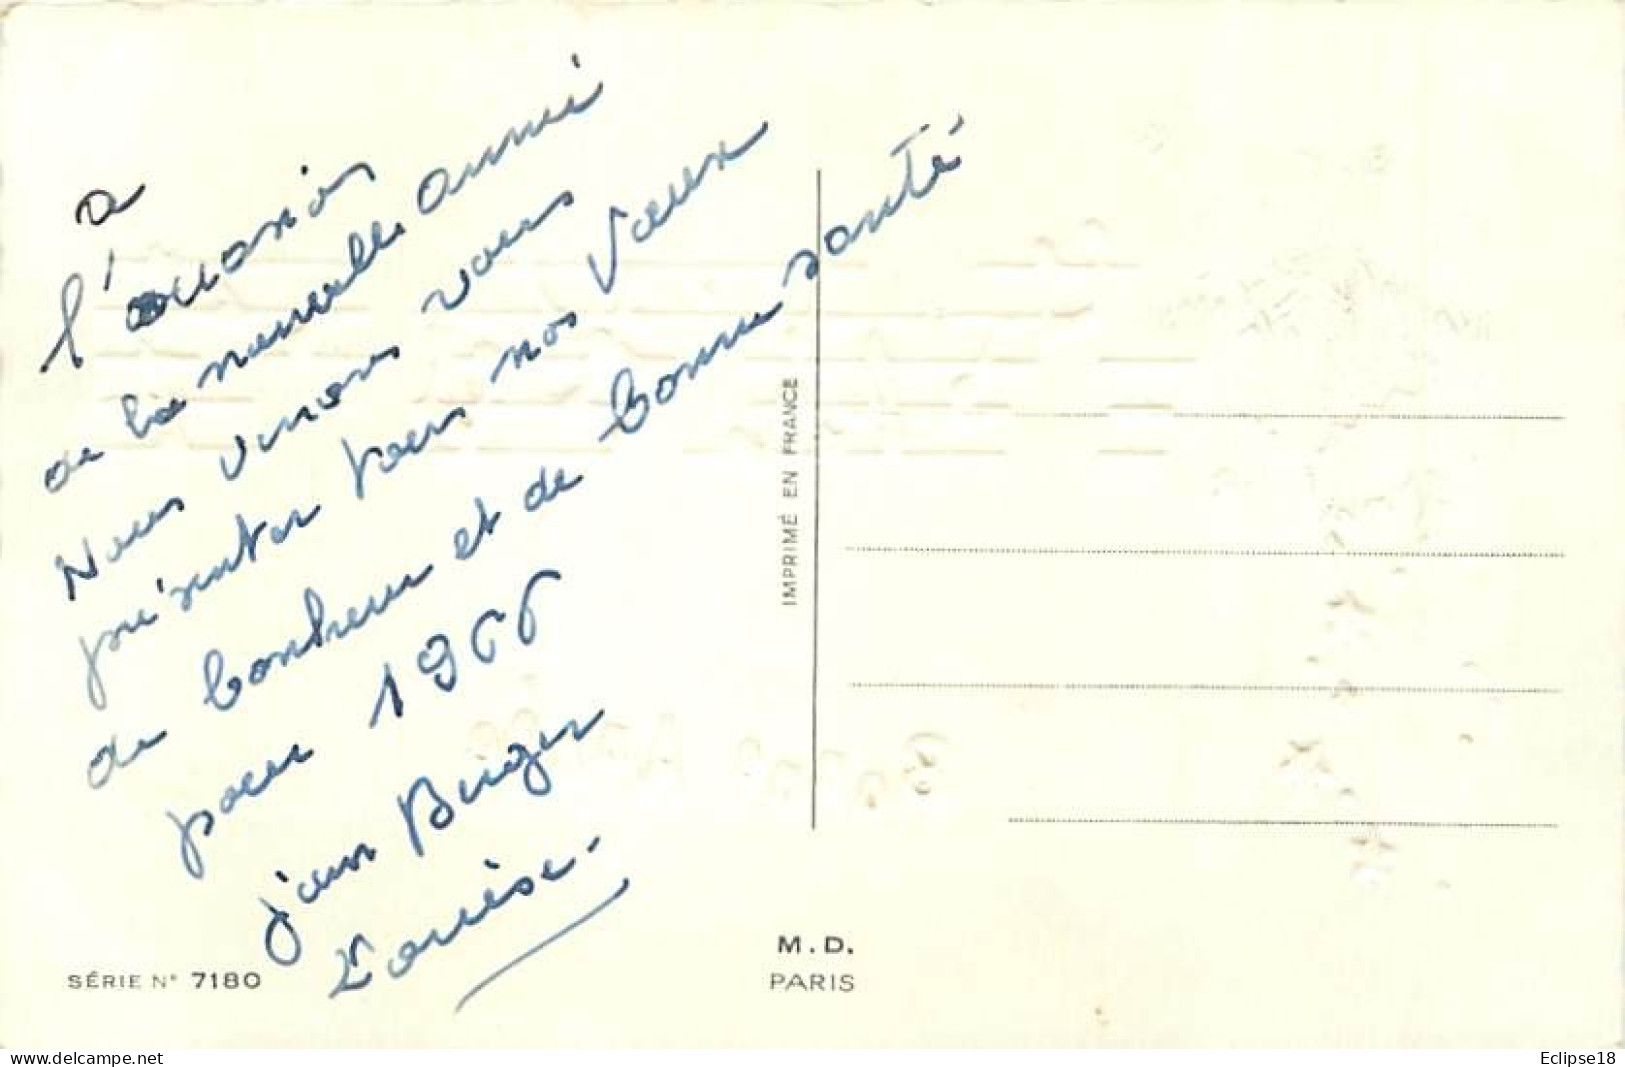 a
l'occasion
de la nouvelle année
Nous venons vous
présenter tous nos Vœux
de bonheur et de bonne santé
pour 1966
jean Burger
Louise.
IMPRIMÉ EN FRANCE
M.D.
PARIS
SÉRIE N° 7180
www.delcampe.net
Eclipse18